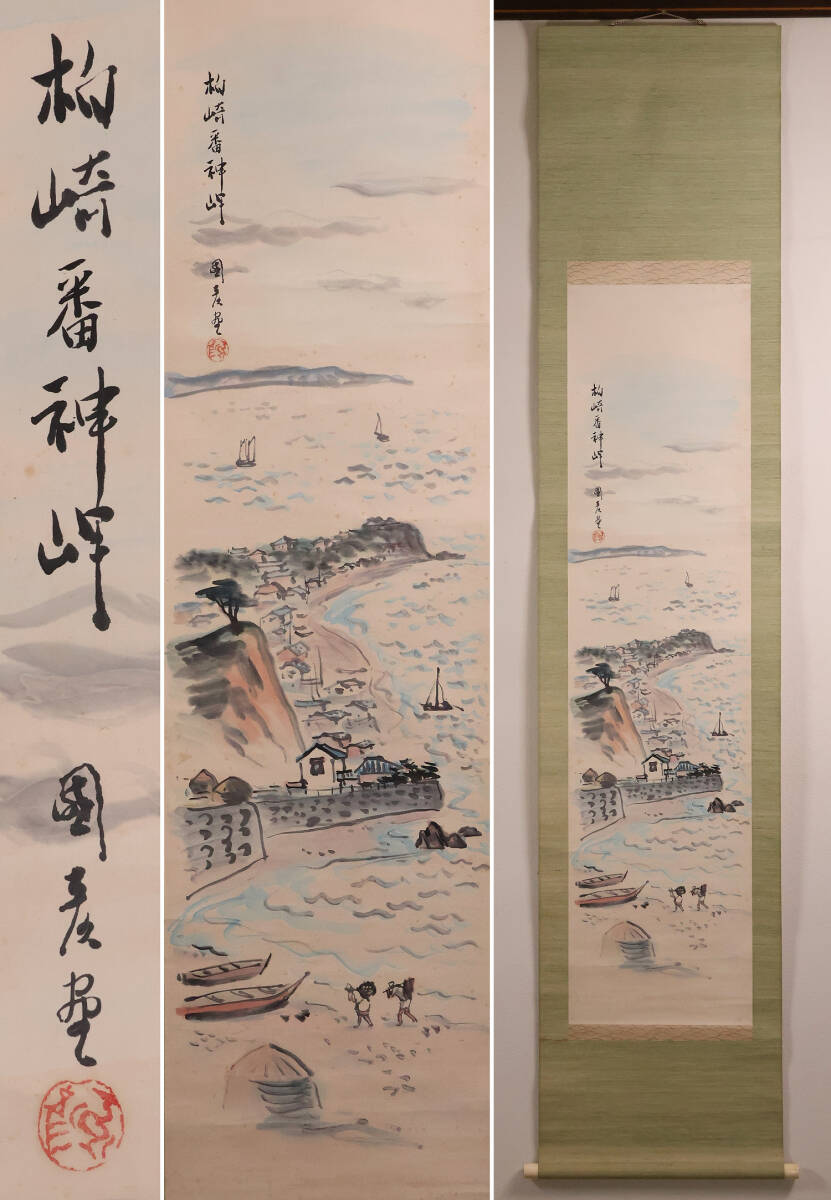 柏崎番神岬 國彦畫
柏崎番神岬 國彦畫
柏崎番神岬 國彦畫